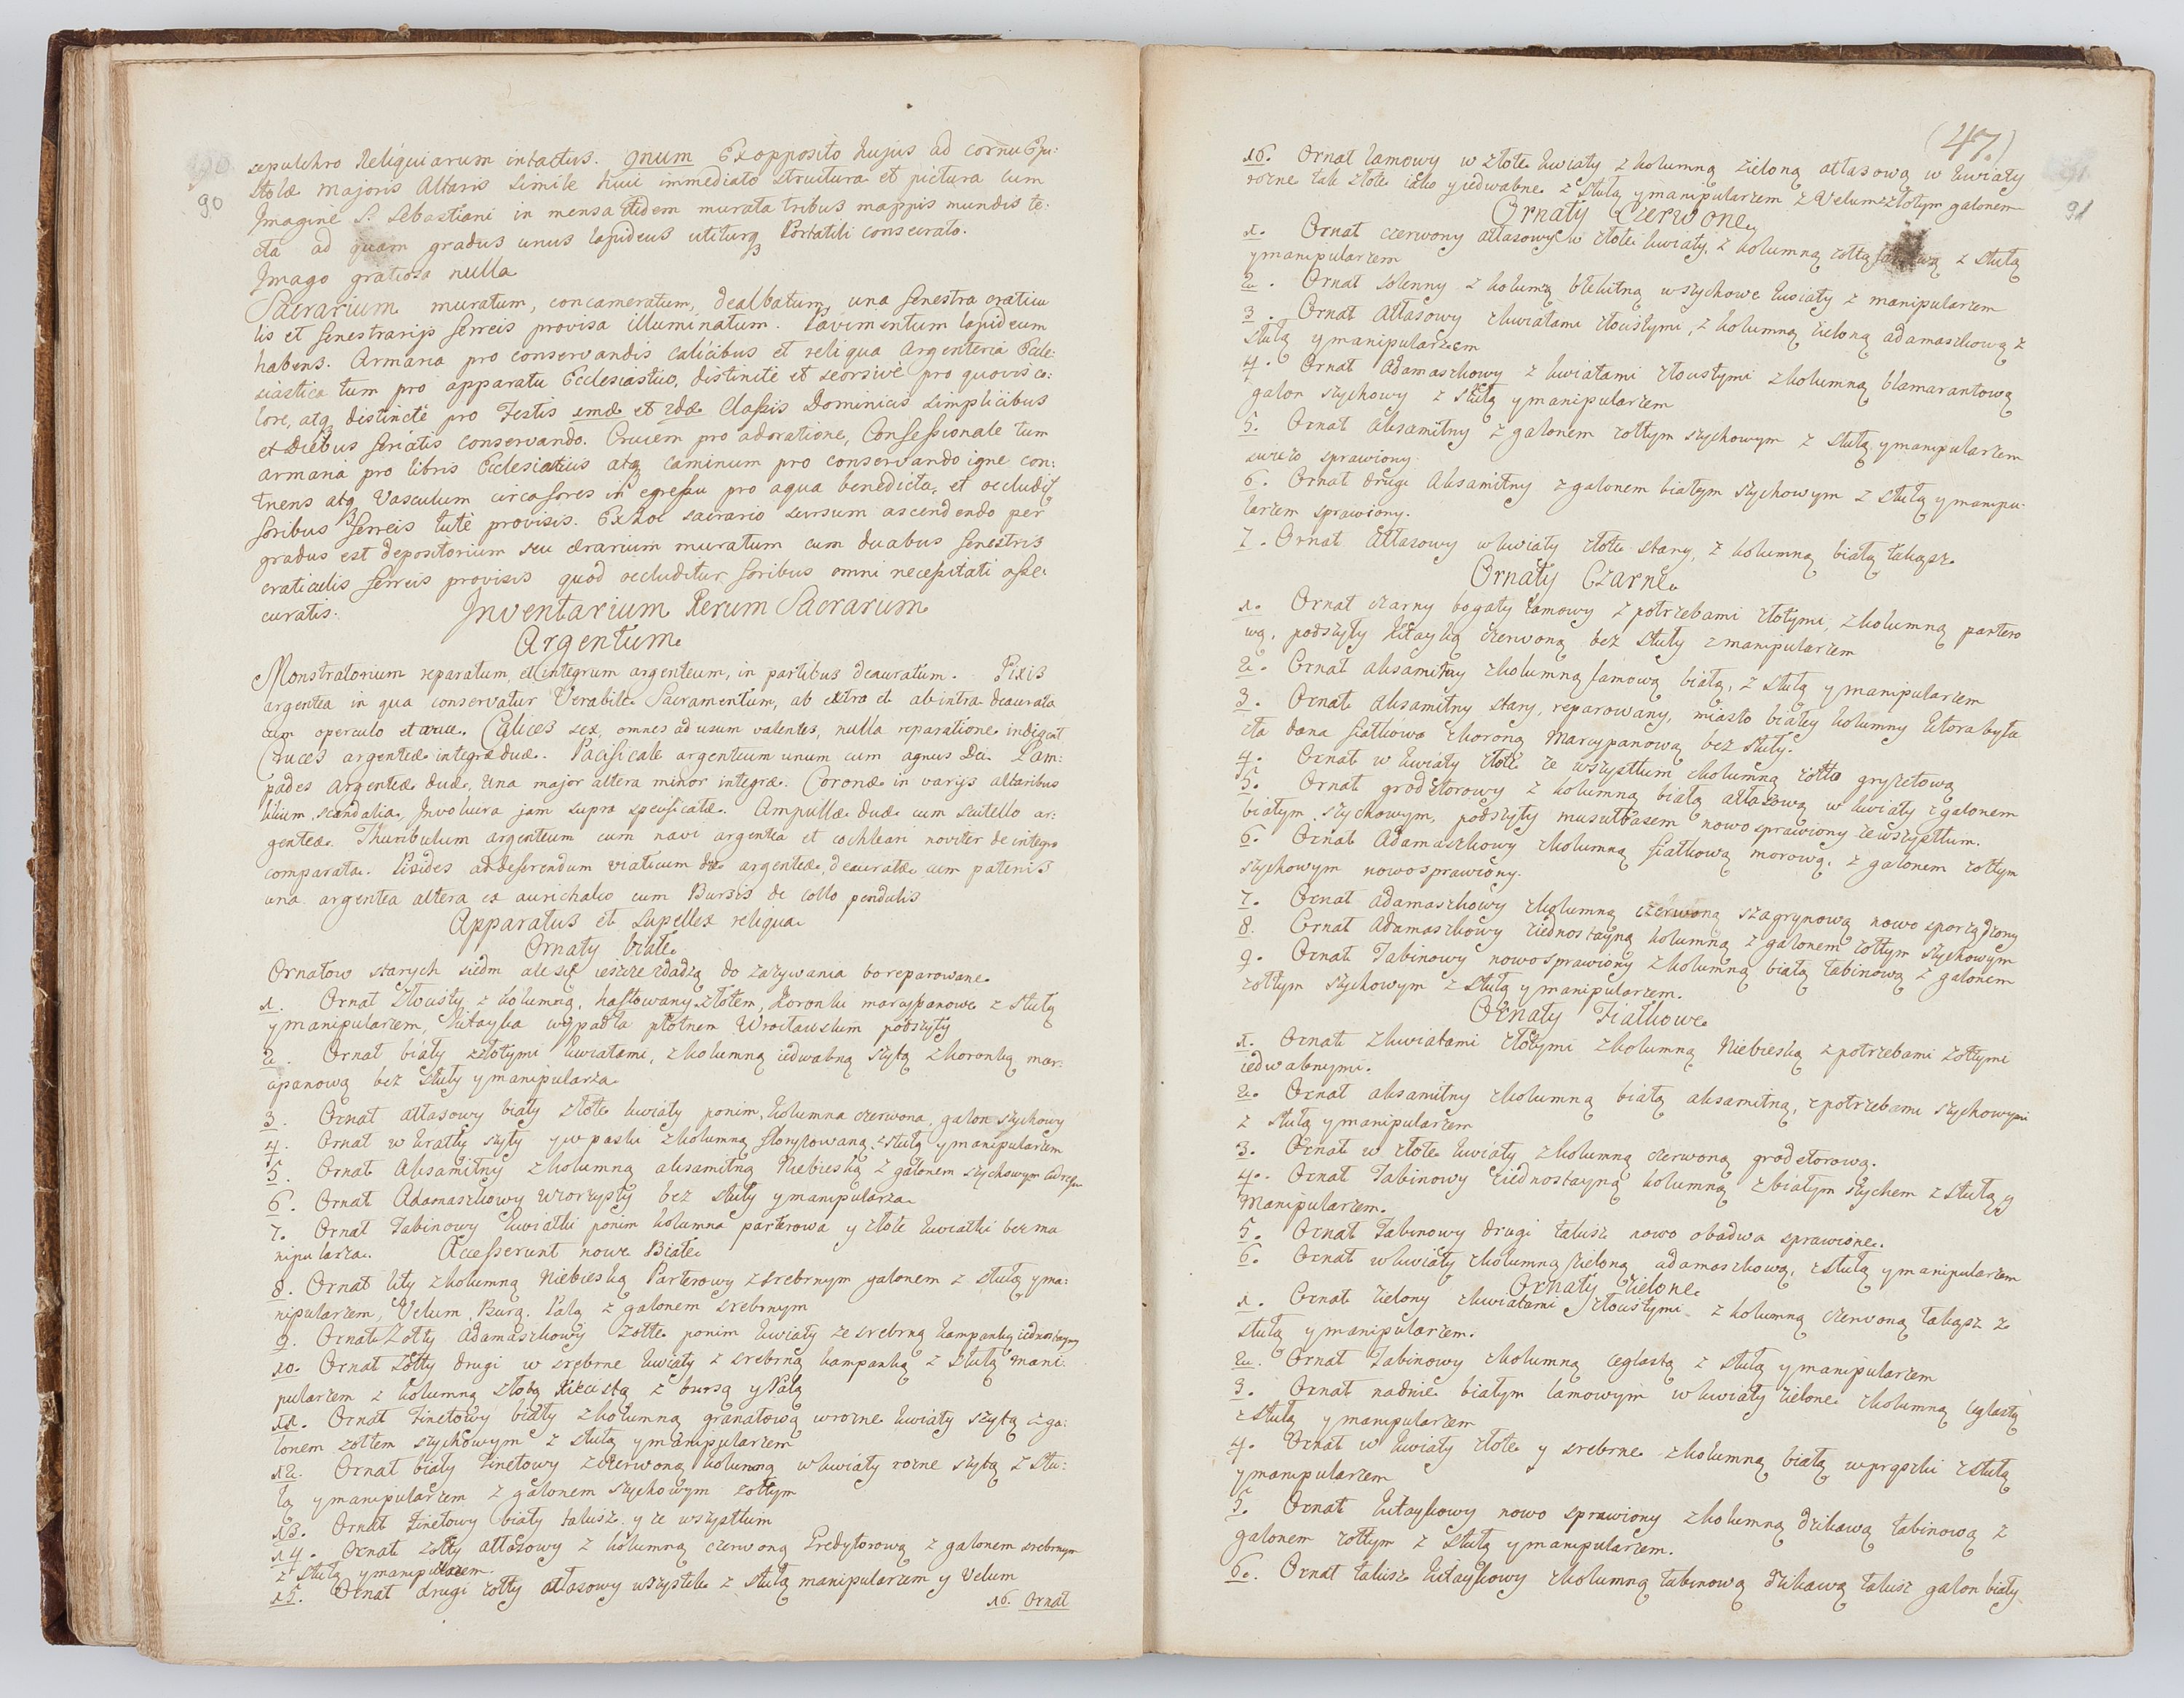 90
sepulchro Reliquiarum intactus. 9num Ex opposito hujus ad cornu Epi:
stolæ Majoris Altaris simile huic immediato structura et pictura cum
Imagine S. Sebastiani in mensa itidem murata tribus mappis mundis te:
cta ad quam gradus unus lapideus utiturq Portatili consecrato.
Imago gratiosa nulla
Sacrarium muratum, concameratum, dealbatum, una fenestra craticu
lis et fenestrarijs ferreis provisa illuminatum. Pavimentum lapideum
habens. Armaria pro conservandis calicibus et reliqua Argenteria Eccle:
siastica tum pro apparatu Ecclesiastico, distincte et seorsive pro quovis co:
lore, atq distincte pro Festis 1mæ et 2dæ Classis Dominicis simplicibus
et Diebus feriatis conservando. Crucem pro adoratione, Confessionale tum
armaria pro libris Ecclesiasticis atq caminum pro conservando igne con:
tinens atq Vasculum circa fores in egressu pro aqua benedicta, et occludit
foribus ferreis tute provisis. Ex hoc sacrario sursum ascendendo per
gradus est depositorium seu ærarium muratum cum duabus fenestris
craticulis ferreis provisis quod occluditur foribus omni necessitati asse
curatis.
Inventarium Rerum Sacrarum
Argentum
Monstratorium reparatum, et integrum argenteum, in partibus deauratum. Pixis
argentea in qua conservatur Venerabile Sacramentum, ab extra et ab intra deaurata
cum operculo et cruce. Calices sex, omnes ad usum valentes, nulla reparatione indigent
Cruces argenteæ integræ duæ. Pacificale argenteum unum cum agnus Dei. Lam:
pades Argenteæ duæ, una major altera minor integræ. Coronæ in varijs altaribus
lilium, scandalia, Involucra jam supra specificatæ. Ampullæ duæ cum scutello ar:
genteæ. Thuribulum argenteum cum navi argentea et cochleari noviter de integro
comparata. Pixides ad deferendum viaticum duæ argenteæ, deauratæ cum patenis
una argentea altera ex aurichalco cum Bursis de collo pendulis
Apparatus et supellex reliqua
Ornaty białe
Ornatow starych siedm ale się ieszcze zdadzą do zazywania bo reparowane
1. Ornat Złocisty z kolumną, haftowany złotem, Koronki marcypanowe z stułą
y manipularzem, kitayka wypadła płotnem Wrocławskim podszyty
2. Ornat biały złotymi kwiatami, z kolumną iedwabną szytą z koronką mar:
cypanową bez stuły y manipularza
3. Ornat attasowy biały złote kwiaty ponim, kolumna czerwona, galon szychowy
4. Ornat w kratkę szyty y w paski z kolumną floryzowaną, z stułą y manipularzem
5. Ornat Aksamitny z kolumną aksamitną Niebieską z galonem szychowym
6. Ornat Adamaszkowy wzorzysty bez stuły y manipularza
7. Ornat Tabinowy kwiatki ponim kolumna parterowa y złote kwiatki bez ma
nipularza. Accesserunt nowe Białe
8. Ornat lity z kolumną Niebieską Parterowy z srebrnym galonem z stułą y ma:
nipularzem, Velum, Bursą, Palą z galonem srebrnym
9. Ornat Zołty Adamaszkowy zołte ponim kwiaty ze srebrną kampanką iednostayny
10. Ornat Zołty drugi w srebrne kwiaty z srebrną kampanką z stułą mani:
pularzem z kolumną złotą kiecistą z bursą y Palą
11. Ornat Tinetowy biały z kolumną granatową w rozne kwiaty szytą z ga:
lonem zołtem szychowym z stułą y manipularzem
12. Ornat biały Tinetowy z czerwoną kolumną w kwiaty rozne szytą z stu:
łą y manipularzem z galonem szychowym zołtym
13. Ornat Tinetowy biały takisz y ze wszystkim
14. Ornat zołty attasowy z kolumną czerwoną Gredytorową z galonem srebrnym
z stułą y manipularzem
15. Ornat drugi zołty attasowy wszystek z stułą manipularzem y Velum
16. Ornat
(47.)
91
16. Ornat lamowy w złote kwiaty z kolumną zieloną attasową w kwiaty
rozne tak złote iako y iedwabne z stułą y manipularzem z Velum z złotym galonem
Ornaty Czerwone
1. Ornat czerwony attasowy w złote kwiaty, z kolumną zołtą z stułą
y manipularzem
2. Ornat solenny z kolumną błekitną w szychowe kwiaty z manipularzem
3. Ornat Attasowy z kwiatami złocistymi, z kolumną zieloną adamaszkową z
stułą y manipularzem
4. Ornat Adamaszkowy z kwiatami złocistymi z kolumną blamarantową
galon szychowy z stułą y manipularzem
5. Ornat Aksamitny z galonem zołtym szychowym z stułą y manipularzem
swiezo sprawiony
6. Ornat drugi Aksamitny z galonem białym szychowym z stułą y manipu:
larzem sprawiony.
7. Ornat Attasowy w kwiaty złote stary, z kolumną białą takąsz
Ornaty Czarne
1. Ornat czarny bogaty lamowy z potrzebami złotymi, z kolumną partero
wą, podszyty kitayką czerwoną bez stuły z manipularzem
2. Ornat aksamitny z kolumną lamową białą, z stułą y manipularzem
3. Ornat aksamitny stary, reparowany, miasto białey kolumny ktora była
ita dana fiałkowa z koroną Marcypanową bez stuły.
4. Ornat w kwiaty złote ze wszystkim z kolumną zołta gryzetową
5. Ornat grodetorowy z kolumną białą attasową w kwiaty z galonem
białym szychowym, podszyty musułbasem nowo sprawiony ze wszystkim.
6. Ornat Adamaszkowy z kolumną fiałkową morową, z galonem zołtym
szychowym nowo sprawiony.
7. Ornat adamaszkowy z kolumną czerwoną szagrynową nowo sporządzony
8. Ornat Adamaszkowy ziednostayną kolumną z galonem zołtym szychowym
9. Ornat Tabinowy nowo sprawiony z kolumną białą tabinową z galonem
zołtym szychowym z stułą y manipularzem.
Ornaty Fiałkowe
1. Ornat z kwiatami złotymi z kolumną Niebieską z potrzebami zołtymi
iedwabnymi.
2. Ornat aksamitny z kolumną białą aksamitną, z potrzebami szychowymi
z stułą y manipularzem
3. Ornat w złote kwiaty z kolumną czerwoną grodetorową.
4. Ornat Tabinowy ziednostayną kolumną z białym szychem z stułą y
Manipularzem.
5. Ornat Tabinowy drugi takisz nowo obadwa sprawione.
6. Ornat w kwiaty z kolumną zieloną adamaszkową, z stułą y manipularzem
Ornaty Zielone
1. Ornat zielony z kwiatami złocistymi z kolumną czerwoną takąsz z
stułą y manipularzem.
2. Ornat Tabinowy z kolumną ceglastą z stułą y manipularzem
3. Ornat nadnie białym lamowym w kwiaty zielone z kolumną ceglastą
z stułą y manipularzem
4. Ornat w kwiaty złote y srebrne z kolumną białą w prąszki z stułą
y manipularzem
5. Ornat kitaykowy nowo sprawiony z kolumną dzikawą tabinową z
galonem zołtym z stułą y manipularzem.
6. Ornat takisz kitaykowy z kolumną tabinową dzikawą takisz galon biały